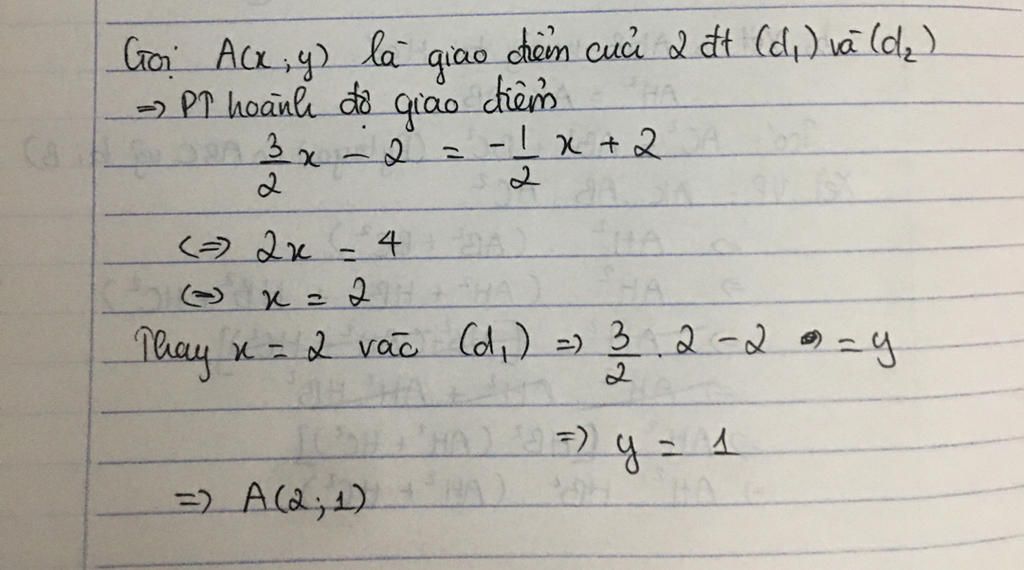 Gọi A(x;y) là giao điểm của 2 đt (d₁) và (d₂)
=> PT hoành độ giao điểm
3/2 x - 2 = -1/2 x + 2
<=> 2x = 4
<=> x = 2
Thay x = 2 vào (d₁) => 3/2 . 2 - 2 = y
=> y = 1
=> A(2;1)